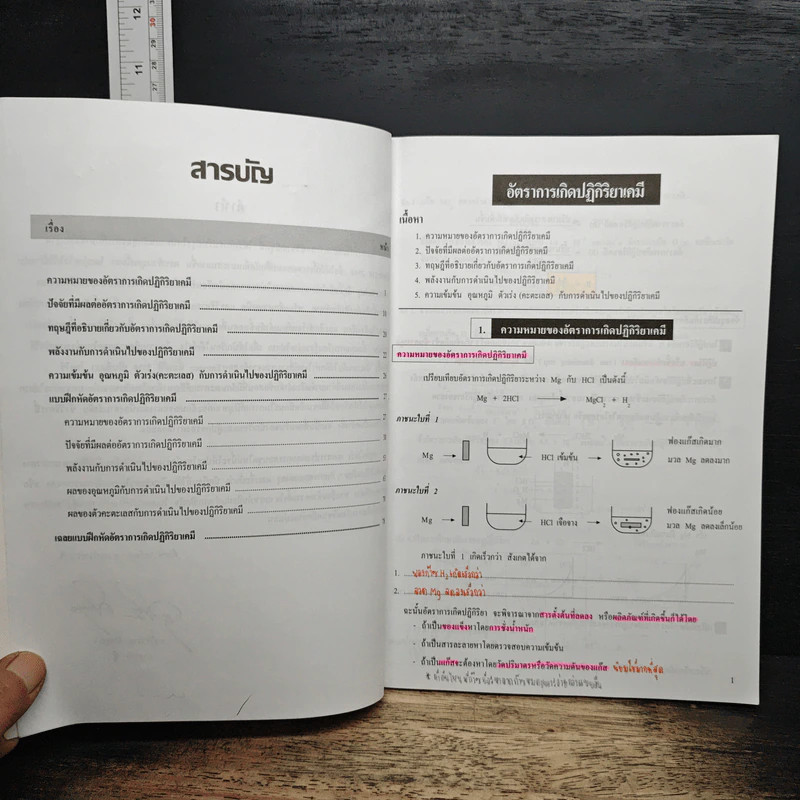 12
11
30
29
28
27
สารบัญ
เรื่อง
ความหมายของอัตราการเกิดปฏิกิริยาเคมี
ปัจจัยที่มีผลต่ออัตราการเกิดปฏิกิริยาเคมี
ทฤษฎีที่อธิบายเกี่ยวกับอัตราการเกิดปฏิกิริยาเคมี
พลังงานกับการดำเนินไปของปฏิกิริยาเคมี
ความเข้มข้น อุณหภูมิ ตัวเร่ง(คะตะเลส) กับการดำเนินไปของปฏิกิริยาเคมี
แบบฝึกหัดอัตราการเกิดปฏิกิริยาเคมี
ความหมายของอัตราการเกิดปฏิกิริยาเคมี
ปัจจัยที่มีผลต่ออัตราการเกิดปฏิกิริยาเคมี
พลังงานกับการดำเนินไปของปฏิกิริยาเคมี
ผลของอุณหภูมิกับการดำเนินไปของปฏิกิริยาเคมี
ผลของตัวคะตะเลสกับการดำเนินไปของปฏิกิริยาเคมี
เฉลยแบบฝึกหัดอัตราการเกิดปฏิกิริยาเคมี
อัตราการเกิดปฏิกิริยาเคมี
เนื้อหา
1. ความหมายของอัตราการเกิดปฏิกิริยาเคมี
2. ปัจจัยที่มีผลต่ออัตราการเกิดปฏิกิริยาเคมี
3. ทฤษฎีที่อธิบายเกี่ยวกับอัตราการเกิดปฏิกิริยาเคมี
4. พลังงานกับการดำเนินไปของปฏิกิริยาเคมี
5. ความเข้มข้น อุณหภูมิ ตัวเร่ง (คะตะเลส) กับการดำเนินไปของปฏิกิริยาเคมี
1. ความหมายของอัตราการเกิดปฏิกิริยาเคมี
ความหมายของอัตราการเกิดปฏิกิริยาเคมี
เปรียบเทียบอัตราการเกิดปฏิกิริยาระหว่าง Mg กับ HCl เป็นดังนี้
Mg + 2HCl → MgCl₂ + H₂
ภาชนะใบที่ 1
Mg → ← HCl เข้มข้น → ฟองแก๊สเกิดมาก
มวล Mg ลดลงมาก
ภาชนะใบที่ 2
Mg → ← HCl เจือจาง → ฟองแก๊สเกิดน้อย
มวล Mg ลดลงเล็กน้อย
ภาชนะใบที่ 1 เกิดเร็วกว่า สังเกตได้จาก
1. ฟองแก๊ส H₂ เกิดเร็วกว่า
2. มวล Mg ลดลงเร็วกว่า
ฉะนั้นอัตราการเกิดปฏิกิริยา จะพิจารณาจากสารตั้งต้นที่ลดลง หรือผลิตภัณฑ์ที่เกิดขึ้นก็ได้โดย
- ถ้าเป็นของแข็งหาโดยการชั่งน้ำหนัก
- ถ้าเป็นสารละลายหาโดยตรวจสอบความเข้มข้น
- ถ้าเป็นแก๊สจะต้องหาโดยวัดปริมาตรหรือวัดความดันของแก๊ส นิยมใช้มากที่สุด
1